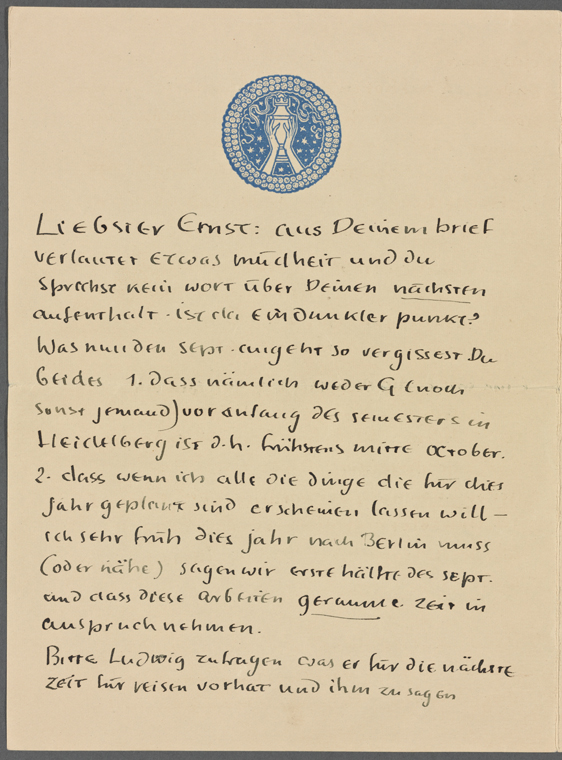 Liebster Ernst: aus Deinem brief
verlautet etwas müdheit und du
sprichst kein wort über Deinen nächsten
aufenthalt · ist da ein dunkler punkt?
Was nun den sept. angeht so vergissest Du
beides 1. dass nämlich weder G (noch
sonst jemand) vor anfang des semesters in
Heidelberg ist d.h. frühstens mitte october.
2. dass wenn ich alle die dinge die für dies
jahr geplant sind erscheinen lassen will —
ich sehr früh dies jahr nach Berlin muss
(oder nähe) sagen wir erste hälfte des sept.
und dass diese arbeiten geraume zeit in
anspruch nehmen.
Bitte Ludwig zu fragen was er für die nächste
zeit für reisen vorhat und ihm zu sagen